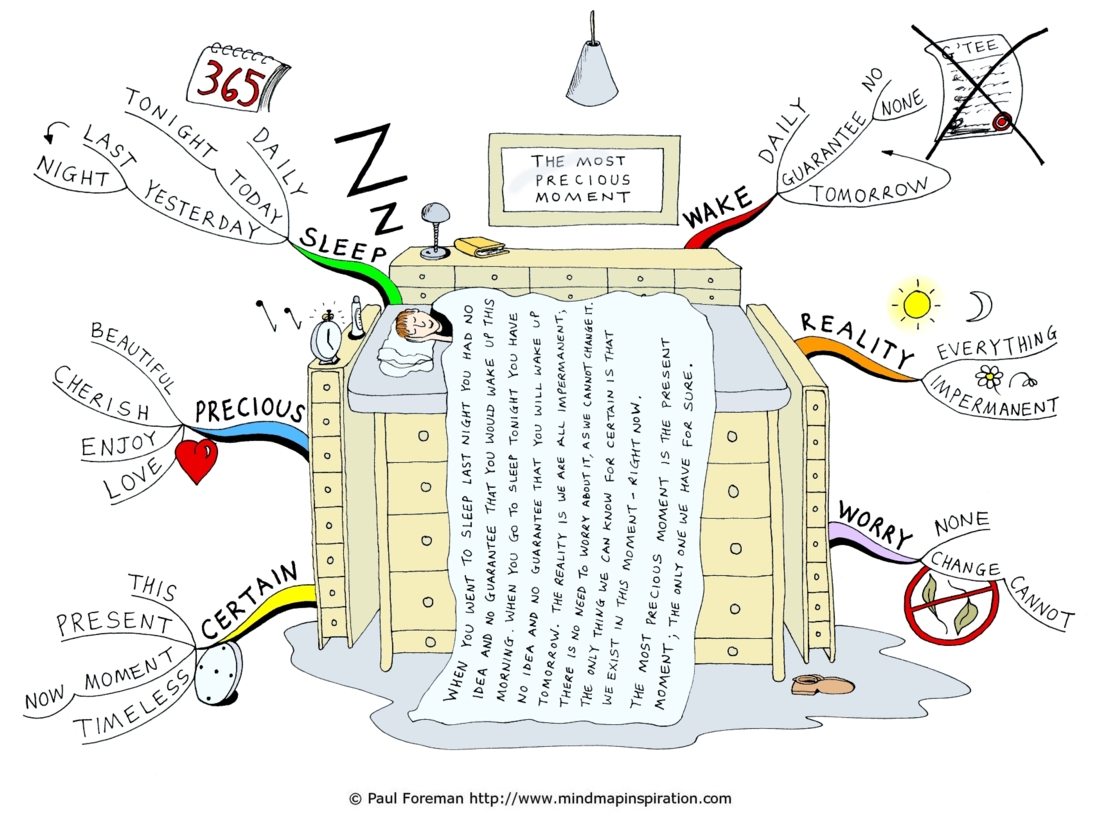 THE MOST
PRECIOUS
MOMENT
365
Z
Z
SLEEP
DAILY
TODAY
TONIGHT
YESTERDAY
LAST
NIGHT
PRECIOUS
BEAUTIFUL
CHERISH
ENJOY
LOVE
CERTAIN
THIS
PRESENT
MOMENT
NOW
TIMELESS
WAKE
DAILY
GUARANTEE
NO
NONE
TOMORROW
G'TEE
REALITY
EVERYTHING
IMPERMANENT
WORRY
NONE
CHANGE
CANNOT
WHEN YOU WENT TO SLEEP LAST NIGHT YOU HAD NO
IDEA AND NO GUARANTEE THAT YOU WOULD WAKE UP THIS
MORNING. WHEN YOU GO TO SLEEP TONIGHT YOU HAVE
NO IDEA AND NO GUARANTEE THAT YOU WILL WAKE UP
TOMORROW. THE REALITY IS WE ARE ALL IMPERMANENT;
THERE IS NO NEED TO WORRY ABOUT IT, AS WE CANNOT CHANGE IT.
THE ONLY THING WE CAN KNOW FOR CERTAIN IS THAT
WE EXIST IN THIS MOMENT - RIGHT NOW.
THE MOST PRECIOUS MOMENT IS THE PRESENT
MOMENT; THE ONLY ONE WE HAVE FOR SURE.
© Paul Foreman http://www.mindmapinspiration.com